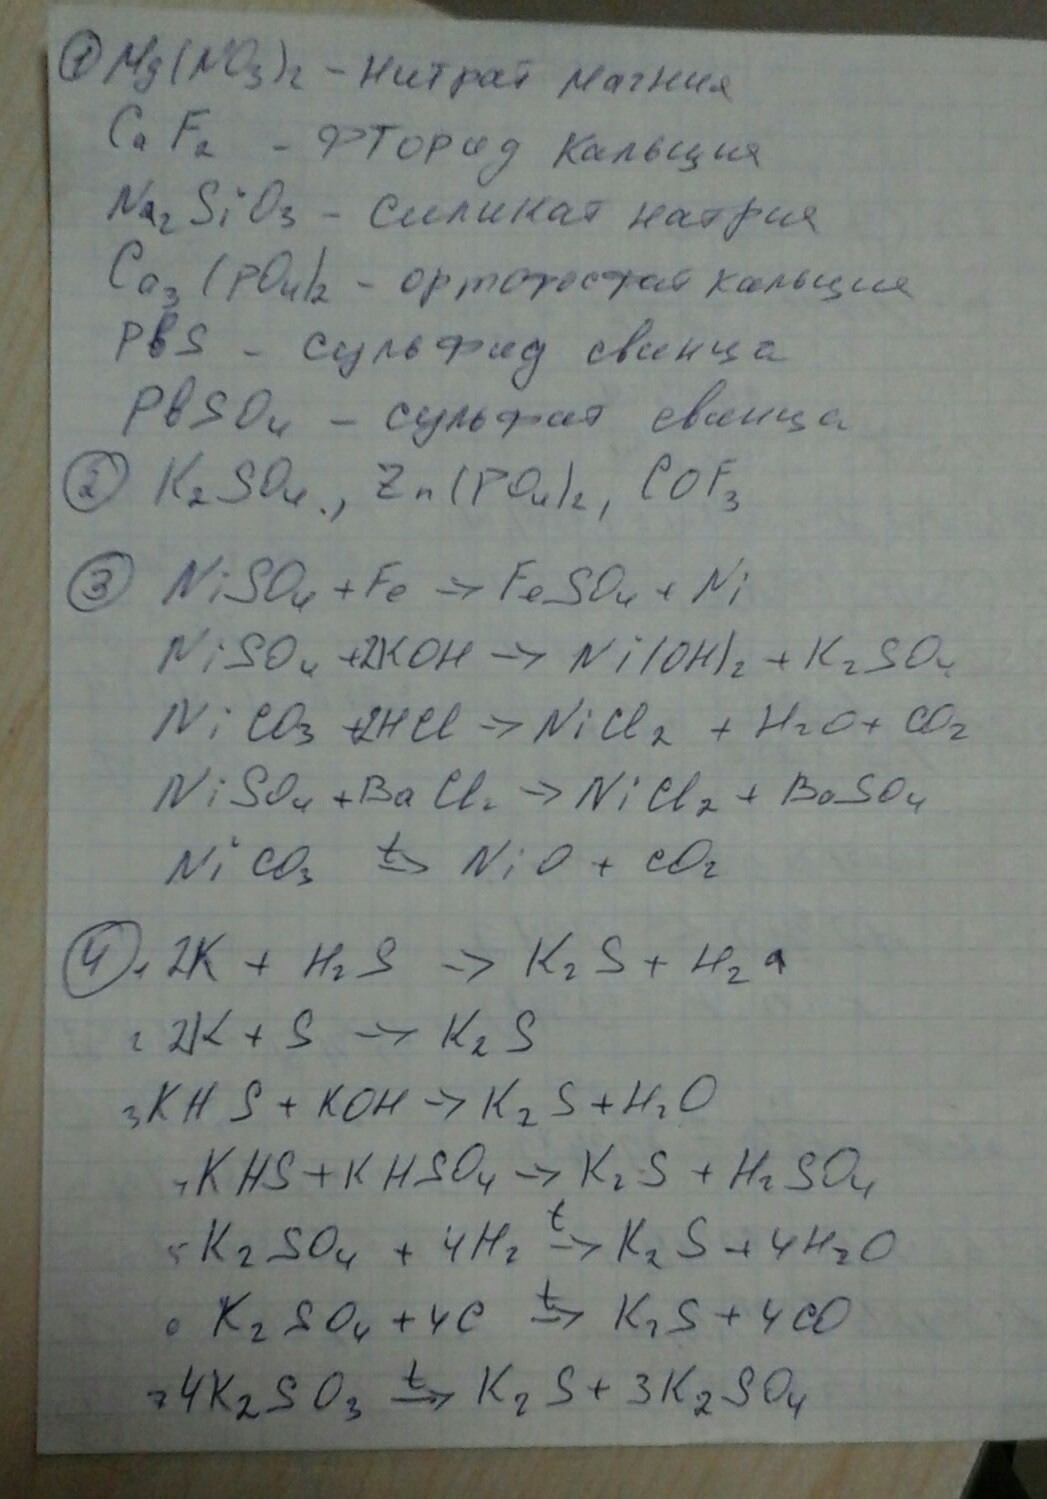 ① Mg(NO3)2 - Нитрат магния
CaF2 - фторид кальция
Na2SiO3 - силикат натрия
Ca3(PO4)2 - ортофосфат кальция
PbS - сульфид свинца
PbSO4 - сульфат свинца
② K2SO4., Zn(PO4)2, COF3
③ NiSO4 + Fe → FeSO4 + Ni
NiSO4 + 2KOH → Ni(OH)2 + K2SO4
NiCO3 + 2HCl → NiCl2 + H2O + CO2
NiSO4 + BaCl2 → NiCl2 + BaSO4
NiCO3 t→ NiO + CO2
④ 1 2K + H2S → K2S + H2↑
2 2K + S → K2S
3 KHS + KOH → K2S + H2O
4 KHS + KHSO4 → K2S + H2SO4
5 K2SO4 + 4H2 t→ K2S + 4H2O
6 K2SO4 + 4C t→ K2S + 4CO
7 4K2SO3 t→ K2S + 3K2SO4